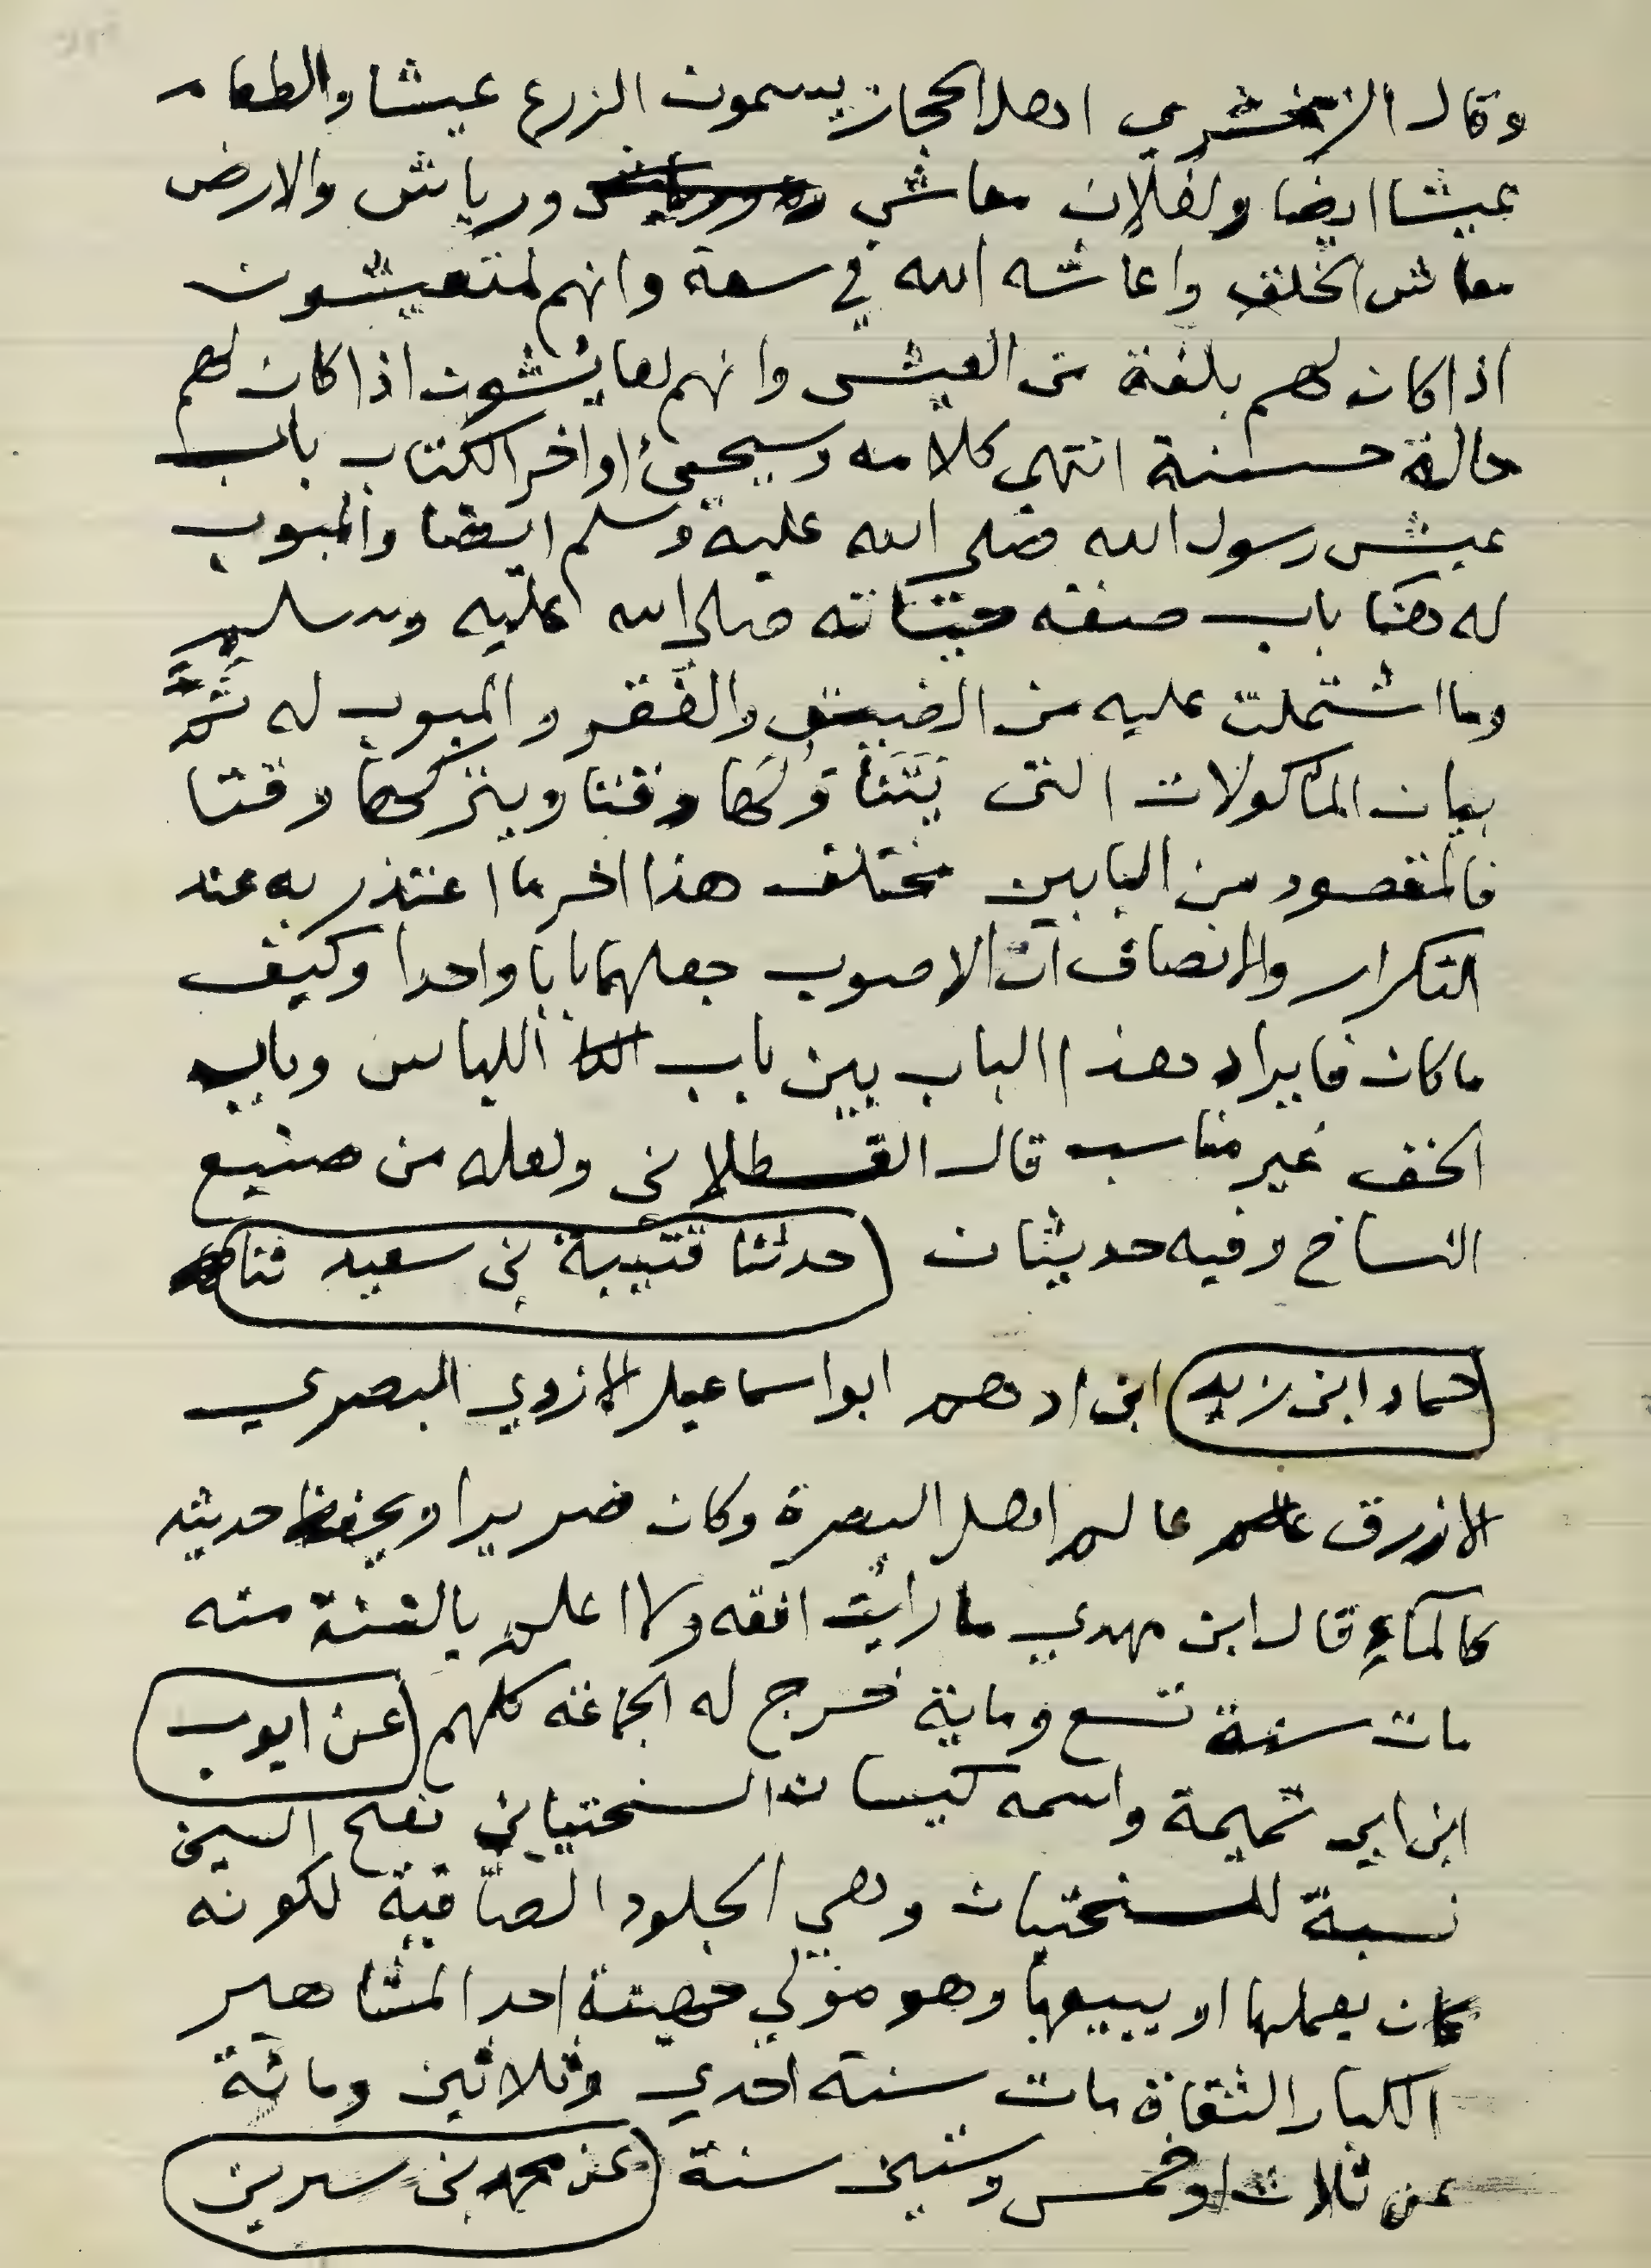 وقال الزمخشري اهل الحجاز يسمون الزرع عيشا والطعام
عيشا ايضا ولفلان معاش ورياش والارض
معاش الخلق واعاشه الله في سعة وانهم لمتعيشون
اذا كان لهم بلغة من العيش وانهم لعايشون اذا كان لهم
حالة حسنة انتهى كلامه وسيجيئ اواخر الكتاب باب
عيش رسول الله صلى الله عليه وسلم ايضا والمبوب
له هنا باب صفة حياته صلى الله عليه وسلم
وما اشتملت عليه من الضيق والفقر والمبوب له ثَمَّ
بيان المأكولات التي يَتَنَاوَلُها وقتا ويتركها وقتا
فالمقصود من البابين مختلف هذا اخر ما اعتذر به عند
التكرار والانصاف ان الاصوب جعلهما بابا واحدا وكيف
ما كان فايراد هذا الباب بين باب اللباس وباب
الخف غير مناسب قال القسطلاني ولعله من صنيع
النساخ وفيه حديثان حدثنا قتيبة بن سعيد ثنا
حماد ابن زيد ابن ادهم ابو اسماعيل الازدي البصري
الازرق عالم اهل البصرة وكان ضريرا ويحفظ حديثه
كالماءِ قال ابن مهدي ما رايت افقه ولا اعلم بالسنة منه
مات سنة تسع وماية خرج له الجماعة كلهم عن ايوب
ابن ابي تميمة واسمه كيسان السختياني بفتح السين
نسبة للسختيان وهي الجلود الصافية لكونه
كان يعملها او يبيعها وهو مولي احد المشاهير
الكبار الثقاة مات سنة احدي وثلاثين ومائة
عن ثلاث او خمس وستين سنة عن محمد بن سيرين